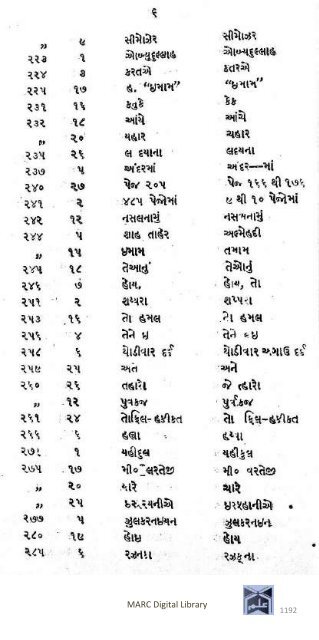 ૬
” ૯ સીમોઝર સીમોઝર
૨૨૩ ૧ ઓબ્યુદુલ્લાહ ઓબ્યદુલ્લાહ
૨૨૪ ૩ કરતએ કતરએ
૨૨૫ ૧૭ હ. “ઇમામ” “ઇમામ”
૨૩૧ ૧૬ કતુકે કેક
૨૩૨ ૧૮ આંચે આંચે
” ૨૦ યહાર ચહાર
૨૩૫ ૨૬ લ દયાના લદયના
૨૩૭ ૫ અંદરમાં અંદર—માં
૨૪૦ ૨૭ પેજ ૨૦૫ પેજ ૧૬૬ થી ૧૭૬
૨૪૧ ૨ ૪૮૫ પેજોમાં ૯ થી ૧૦ પેજોમાં
૨૪૨ ૧૨ નસલનામું નસબનામું
૨૪૪ ૫ શાહ તાહેર અલ્મેહદી
” ૧૫ ઇમામ તમામ
૨૪૫ ૧૮ તેઆનું તેઓનું
૨૪૬ ૭ હોય, હોય, તો
૨૫૧ ૨ શય્યરા શય્યરા
૨૫૩ ૧૬ તો હમલ તો હમલ
૨૫૬ ૪ તેને
૨૫૮ ૬ થોડીવાર દર્દ થોડીવાર અગાઉ દર્દ
૨૫૯ ૨૫ અંત અને
૨૬૦ ૨૬ તહારો જે ત્હારો
” ૧૨ પુત્રકજ પુર્ત્રકજ
૨૬૧ ૨૪ તોફિલ-હકીકત તો ફિલ-હકીકત
૨૬૬ ૬ હણા
૨૭૧ ૧ યહીદુલ યહીકુલ
૨૭૫ ૧૭ મી૦ લરતેજી મી૦ વરતેજી
” ૨૦ ચારે ચારે
” ૨૫
૨૭૭ ૫ ઝુલકરનઇયન ઝુલકરનઇન
૨૮૦ ૧૯ હોઇ હોય
૨૮૫ ૬ રઝનકા રઝકુના
MARC Digital Library
1192